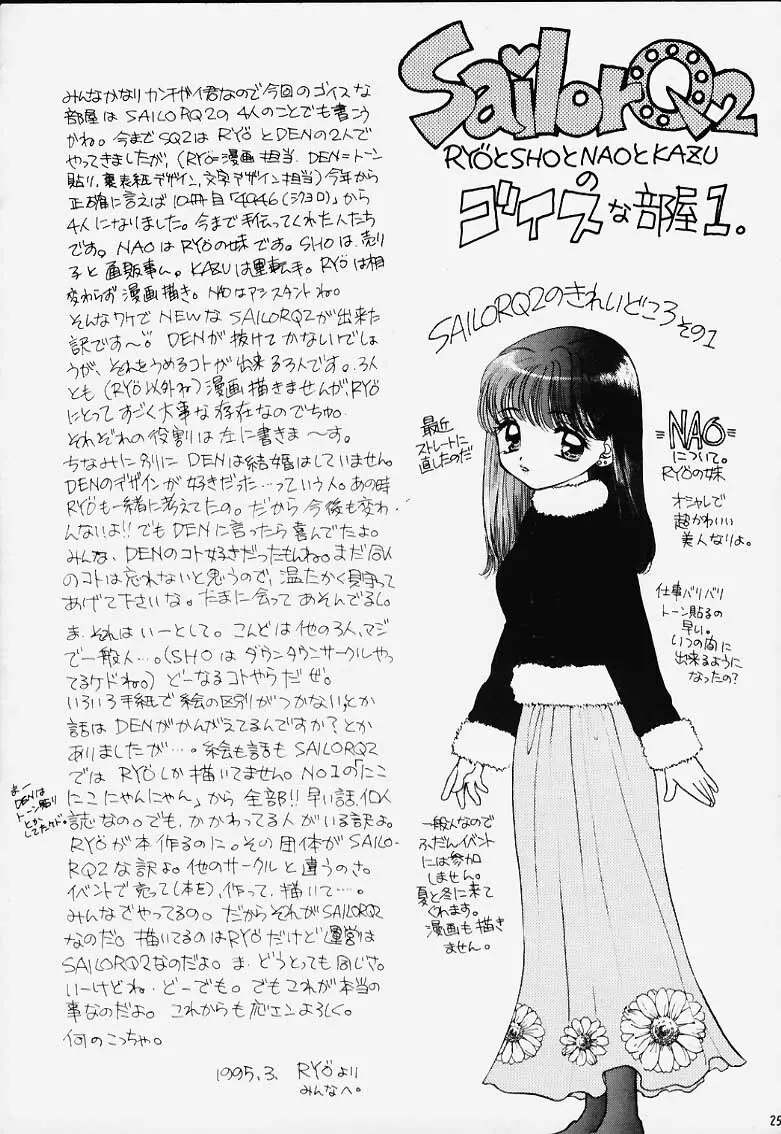 SailorQ2
RYÖとSHOとNAOとKAZU
の
ゴイスな部屋1.
みんなかなりカンチガイ君なので今回のゴイスな
部屋はSAILORQ2の4人のことでも書こう
かね。今までSQ2はRYÖとDENの2人で
やってきましたが、(RYÖ=漫画担当. DEN=トーン
貼り,裏表紙デザイン,文字デザイン担当)今年から
正確に言えば10冊目「4946(シクヨロ)」から
4人になりました。今まで手伝ってくれた人たち
です。NAOはRYÖの妹です。SHOは,売り
子と通販事ム。KAZUは運転手。RYÖは相
変わらず漫画描き。NAOはアシスタントね。
そんなワケでNEWなSAILORQ2が出来た
訳です〜。DENが抜けてかないけでしょ
うが、それをうめるコトが出来る3人です。3人
とも(RYÖ以外ね)漫画描きませんが,RYÖ
にとってすごく大事な存在なのでちゅ。
それぞれの役割は左に書きま〜す。
ちなみに別にDENは結婚はしていません。
DENのデザインが好きだった…っていう人。あの時
RYÖも一緒に考えてたの。だから今後も変わ
んないよ!!でもDENに言ったら喜んでたよ。
みんな、DENのコト好きだったもんね。まだ同人
のコトは忘れないと思うので、温たかく見守って
あげて下さいな。たまに会ってあそんでるし。
ま、それはいーとして。こんどは他の3人,マジ
で一般人…。(SHOはダウンタウンサークルやっ
てるケドね。)どーなるコトやらだぜ。
いろいろ手紙で絵の区別がつかない,とか
話はDENがかんがえてるんですか?とか
ありましたが…。絵も話もSAILORQ2
ではRYÖしか描いてません。NO1の「にこ
にこにゃんにゃん」から全部!!早い話,個人
誌なの。でも,かかわってる人がいる訳よ。
RYÖが本作るのに。その団体がSAILO-
RQ2な訳よ。他のサークルと違うのさ。
イベントで売って(本を),作って,描いて…。
みんなでやってるの。だからそれがSAILORQ2
なのだ。描いてるのはRYÖだけど運営は
SAILORQ2なのだよ。ま、どうとっても同じさ。
いーけどね・どーでも。でもこれが本当の
事なのだよ。これからも応エンよろしく。
何のこっちゃ。
1995.3. RYÖより
みんなへ。
まー
DENは
トーン貼り
とか
してたケド。
SAILORQ2のきれいどころ
その1
最近
ストレートに
直したのだ
=NAO=
について。
RYÖの妹
オシャレで
超かわいい
美人なりよ。
仕事バリバリ
トーン貼るの
早い。
いつの間に
出来るように
なったの?
一般人なので
ふだんイベント
には参加
しません。
夏と冬に来て
くれます。
漫画も描き
ません。
25